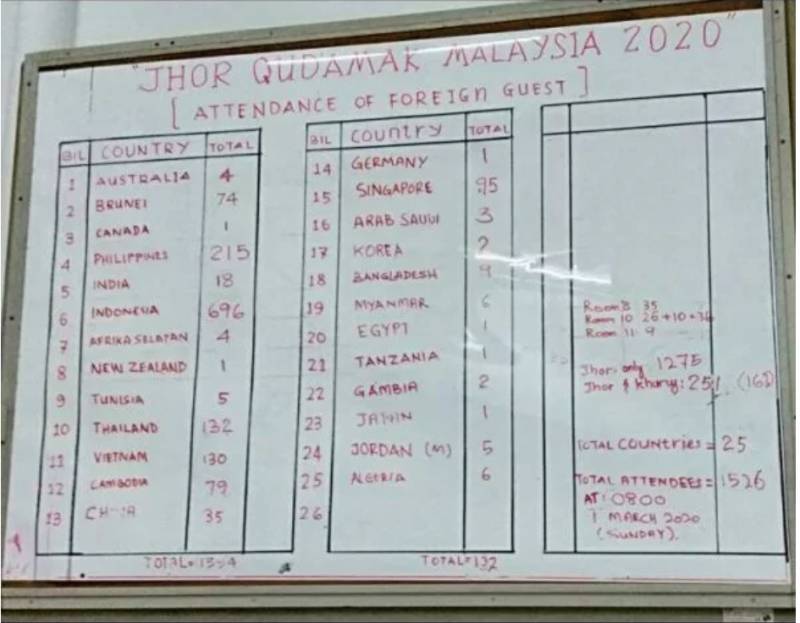 "JHOR QUDAMAK MALAYSIA 2020"
[ATTENDANCE OF FOREIGN GUEST]
BIL COUNTRY TOTAL
1 AUSTRALIA 4
2 BRUNEI 74
3 CANADA 1
4 PHILIPPINES 215
5 INDIA 18
6 INDONESIA 696
7 AFRIKA SELATAN 4
8 NEW ZEALAND 1
9 TUNISIA 5
10 THAILAND 132
11 VIETNAM 130
12 CAMBODIA 79
13 CHINA 35
TOTAL=1394
BIL COUNTRY TOTAL
14 GERMANY 1
15 SINGAPORE 95
16 ARAB SAUDI 3
17 KOREA
18 BANGLADESH
19 MYANMAR 6
20 EGYPT 1
21 TANZANIA 1
22 GAMBIA 2
23 1
24 JORDAN (M) 5
25 ALGERIA 6
26
TOTAL=132
Room 8 35
Room 10 26+10=36
Room 11 9
Jhor only 1275
Jhor & : 251
TOTAL COUNTRIES = 25
TOTAL ATTENDEES = 1526
AT: 0800
1 MARCH 2020
(SUNDAY).